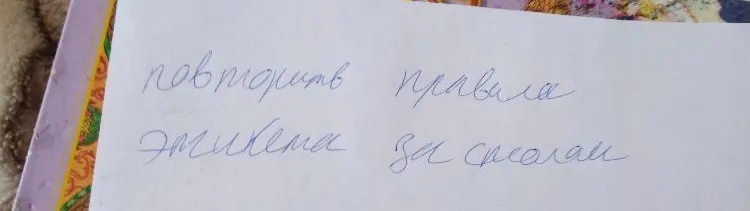 повторить правила
этикета за столом